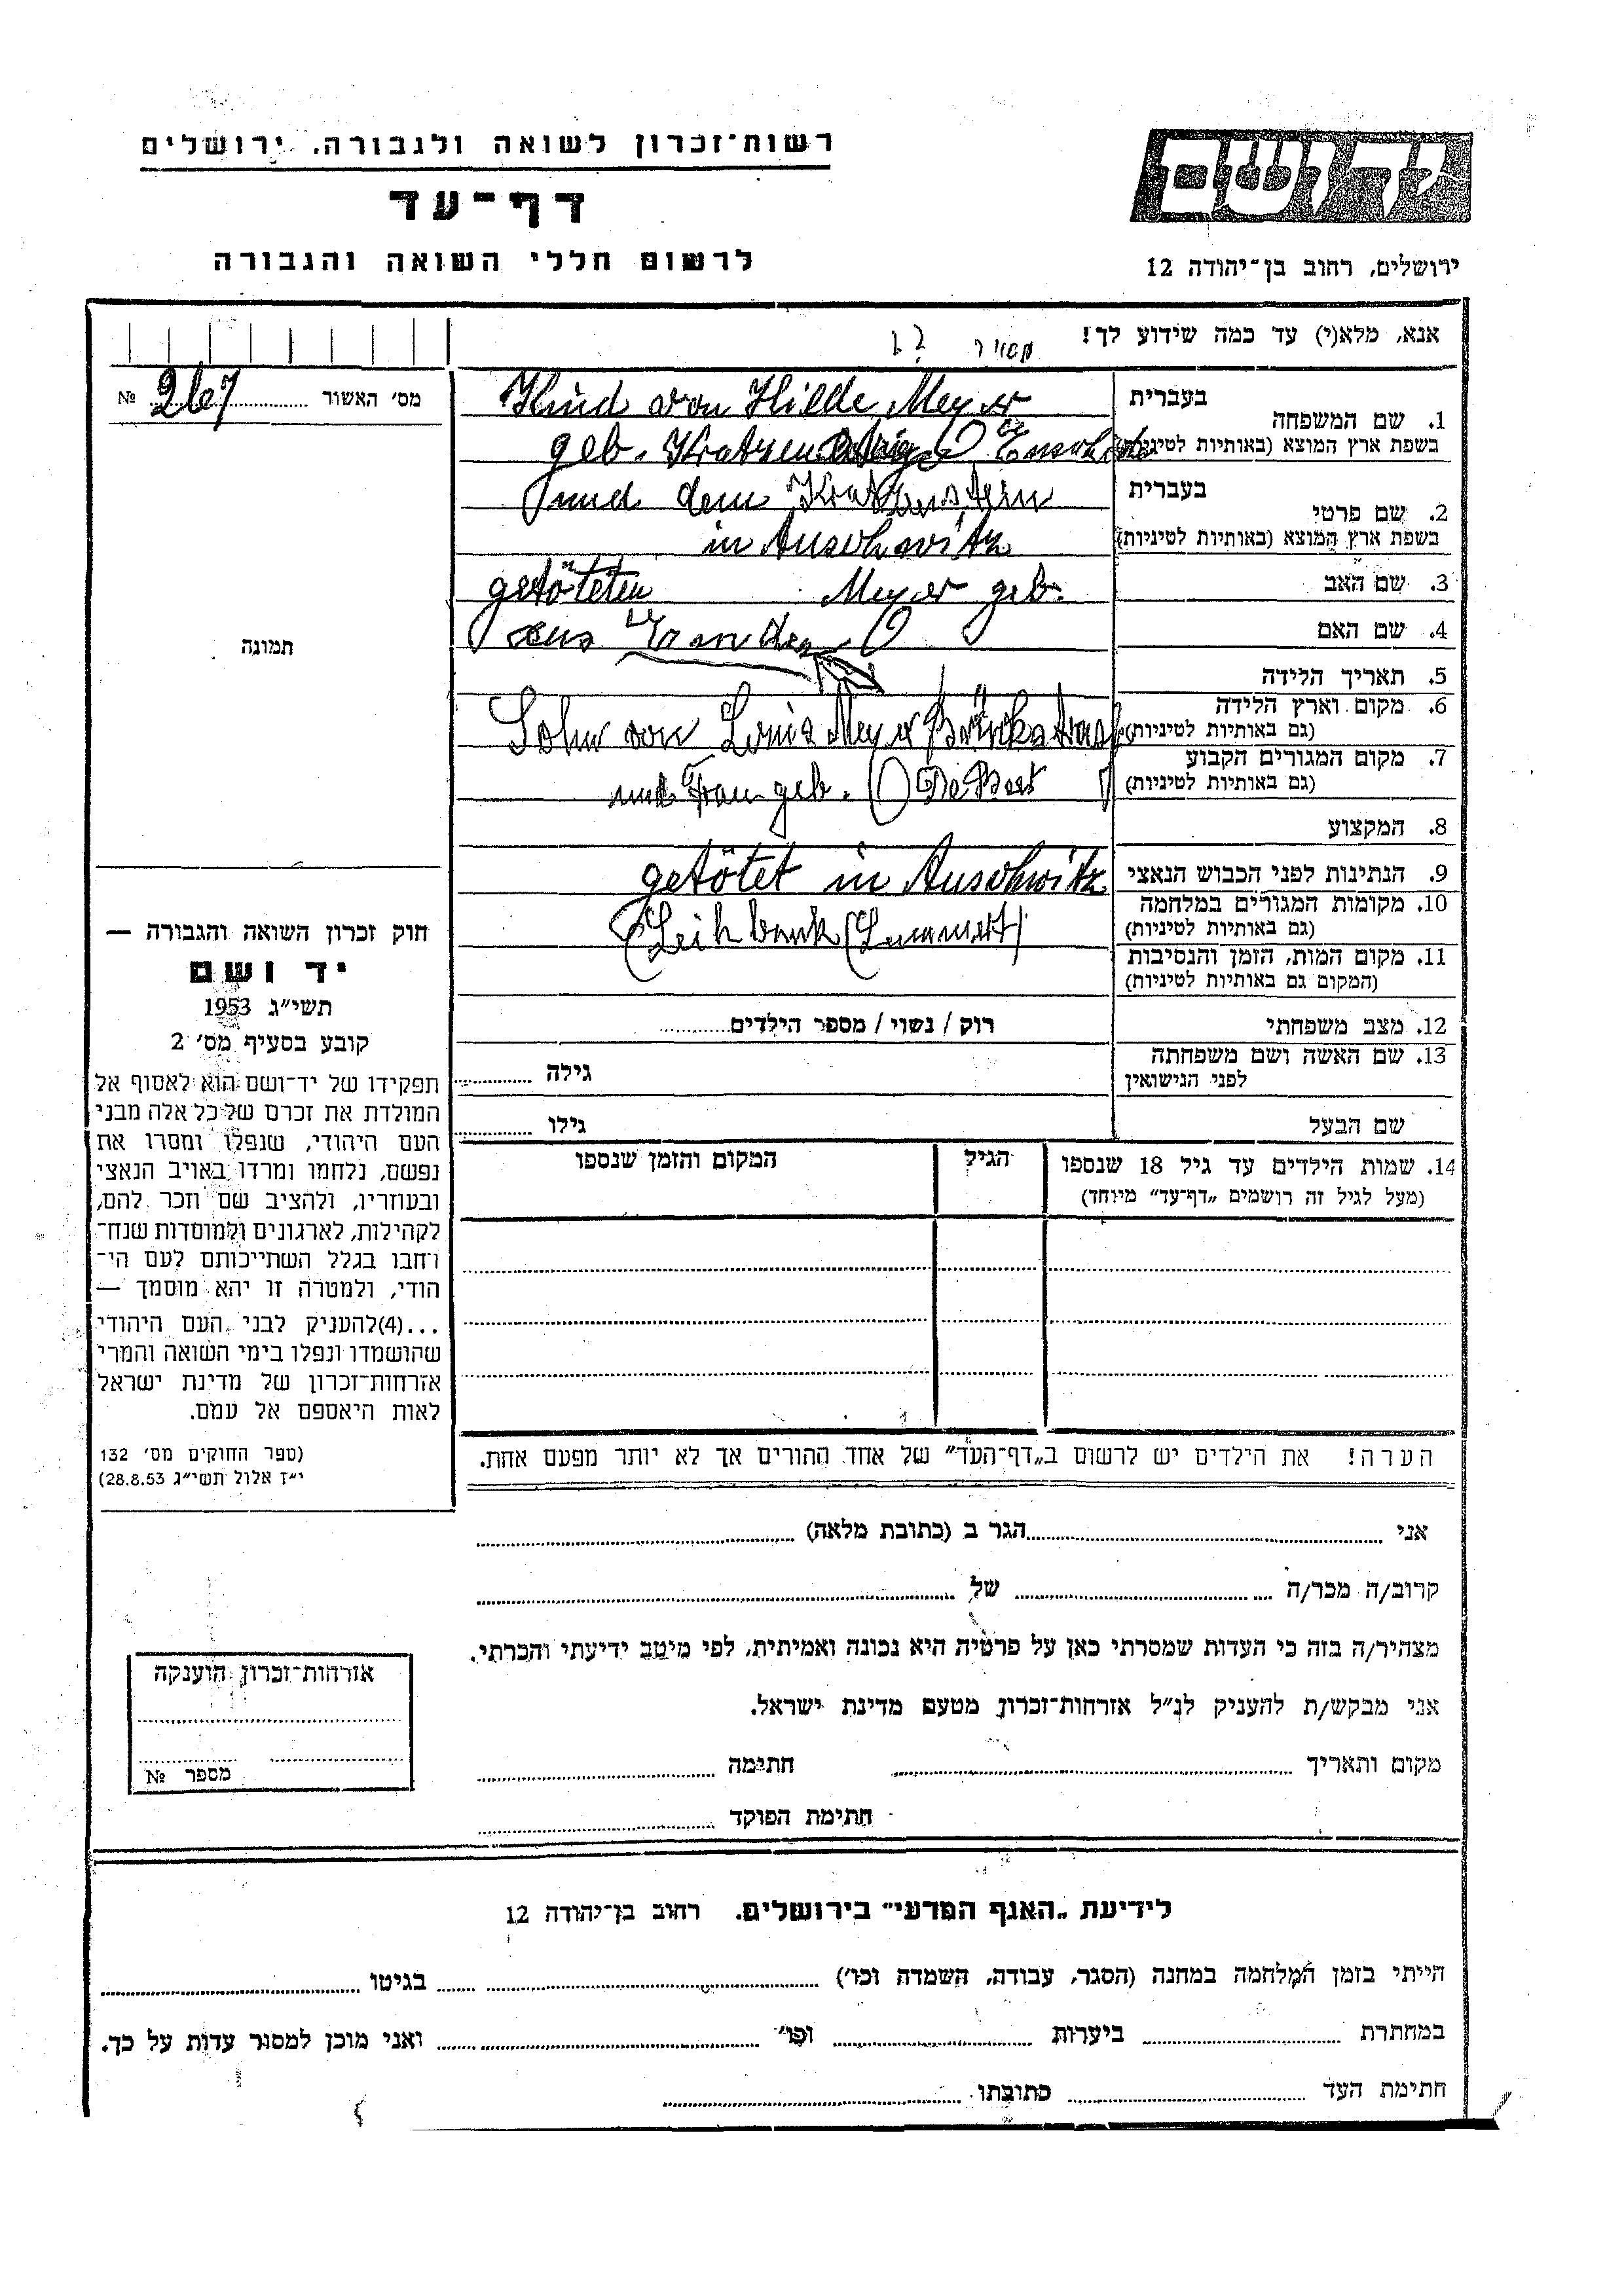 רשות-זכרון לשואה ולגבורה, ירושלים
דף-עד
לרשום חללי השואה והגבורה
יד ושם
ירושלים, רחוב בן-יהודה 12
אנא, מלא(י) עד כמה שידוע לך!
מאיר
מס׳ האשור 267 №
בעברית
1. שם המשפחה
בשפת ארץ המוצא (באותיות לטיניות)
Kind von Hilde Meyer
geb.
בעברית
2. שם פרטי
בשפת ארץ המוצא (באותיות לטיניות)
und dem
in Auschwitz
3. שם האב
getöteten Meyer geb.
4. שם האם
aus Emden
5. תאריך הלידה
6. מקום וארץ הלידה
(גם באותיות לטיניות)
Sohn von Louis Meyer Brückstrasse
7. מקום המגורים הקבוע
(גם באותיות לטיניות)
und Frau geb. De Beer
8. המקצוע
9. הנתינות לפני הכבוש הנאצי
getötet in Auschwitz
10. מקומות המגורים במלחמה
(גם באותיות לטיניות)
(Leihbank
11. מקום המות, הזמן והנסיבות
(המקום גם באותיות לטיניות)
12. מצב משפחתי
רוק / נשוי / מספר הילדים
13. שם האשה ושם משפחתה
לפני הנישואין
גילה
שם הבעל
גילו
14. שמות הילדים עד גיל 18 שנספו
(מעל לגיל זה רושמים „דף-עד״ מיוחד)
הגיל
המקום והזמן שנספו
תמונה
חוק זכרון השואה והגבורה —
יד ושם
תשי״ג 1953
קובע בסעיף מס׳ 2
תפקידו של יד-ושם הוא לאסוף אל
המולדת את זכרם של כל אלה מבני
העם היהודי, שנפלו ומסרו את
נפשם, נלחמו ומרדו באויב הנאצי
ובעוזריו, ולהציב שם וזכר להם,
לקהילות, לארגונים ולמוסדות שנח-
רבו בגלל השתייכותם לעם הי-
הודי, ולמטרה זו יהא מוסמך —
...(4)להעניק לבני העם היהודי
שהושמדו ונפלו בימי השואה והמרי
אזרחות-זכרון של מדינת ישראל
לאות היאספם אל עמם.
(ספר החוקים מס׳ 132
י״ז אלול תשי״ג 28.8.53)
הערה! את הילדים יש לרשום ב„דף-העד״ של אחד ההורים אך לא יותר מפעם אחת.
אני הגר ב (כתובת מלאה)
קרוב/ה מכר/ה של
מצהיר/ה בזה כי העדות שמסרתי כאן על פרטיה היא נכונה ואמיתית, לפי מיטב ידיעתי והכרתי.
אני מבקש/ת להעניק לנ״ל אזרחות-זכרון מטעם מדינת ישראל.
מקום ותאריך חתימה
חתימת הפוקד
אזרחות-זכרון הוענקה
מספר №
לידיעת „האגף המדעי״ בירושלים. רחוב בן-יהודה 12
הייתי בזמן המלחמה במחנה (הסגר, עבודה, השמדה וכו׳) בגיטו
במחתרת ביערות וכו׳ ואני מוכן למסור עדות על כך.
חתימת העד כתובתו